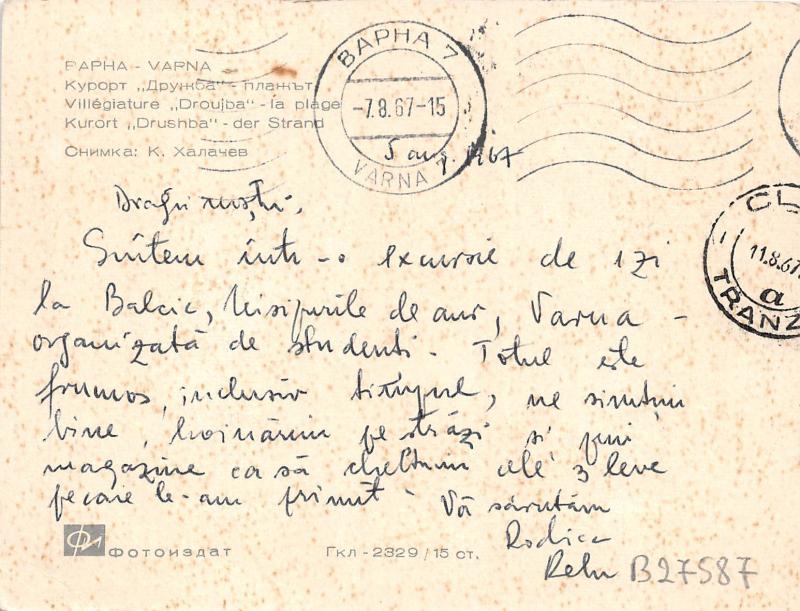 ВАРНА - VARNA
Курорт „Дружба" - плажът
Villégiature „Droujba" - la plage
Kurort „Drushba" - der Strand
Снимка: К. Халачев
ВАРНА 7
-7.8.67-15
VARNA 7
5 aug. 1967
CL
11.8.67
a
TRANZ
Dragii noștri,
Suntem într-o excursie de 1 zi
la Balcic, Nisipurile de aur, Varna -
organizată de studenti. Totul este
frumos, inclusiv timpul, ne simțim
bine, hoinărim pe străzi si prin
magazine ca să cheltuim cele 3 leve
pe care le-am primit. Vă sărutăm
Rodica
Relu
B27587
Фотоиздат
Гкл - 2329 / 15 ст.